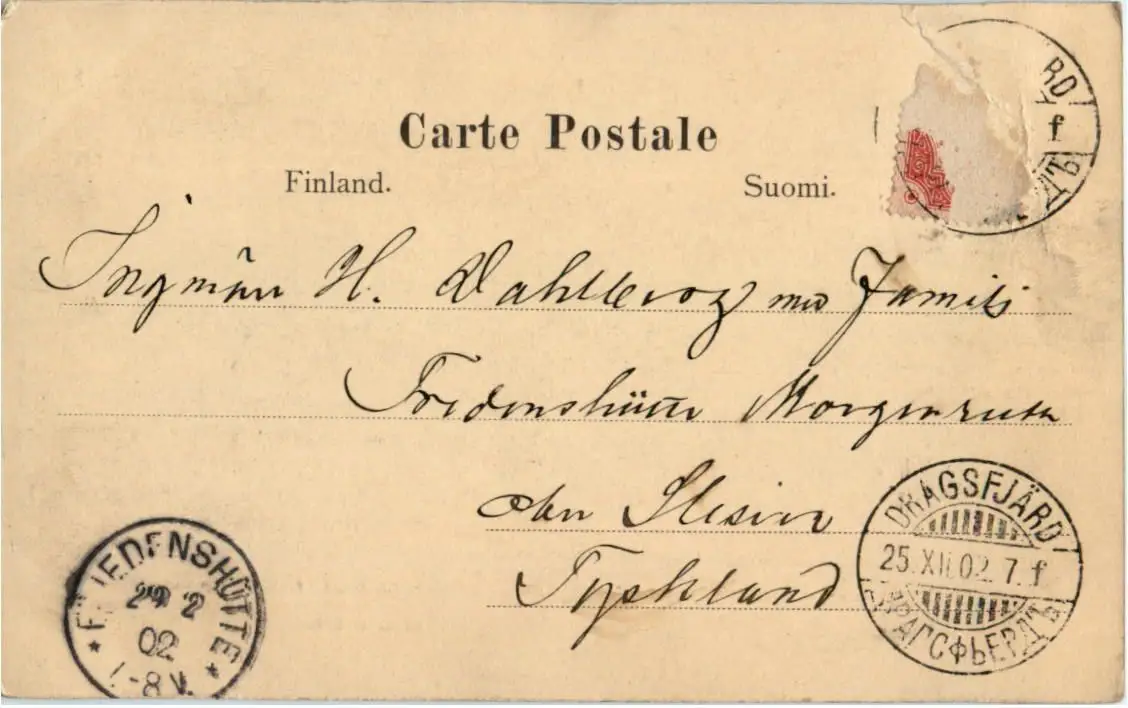 Carte Postale
Finland. Suomi.
RD
f
ДЪ
Ingniön H. Dahlberg med Familj
Fredenshütte Morgenrute
ober Slesien
Tyskland
DRAGSFJÄRD
25. XII. 02. 7. f
ДРАГСФЬЕРДЪ
FRIEDENSHÜTTE
02
-8 V.